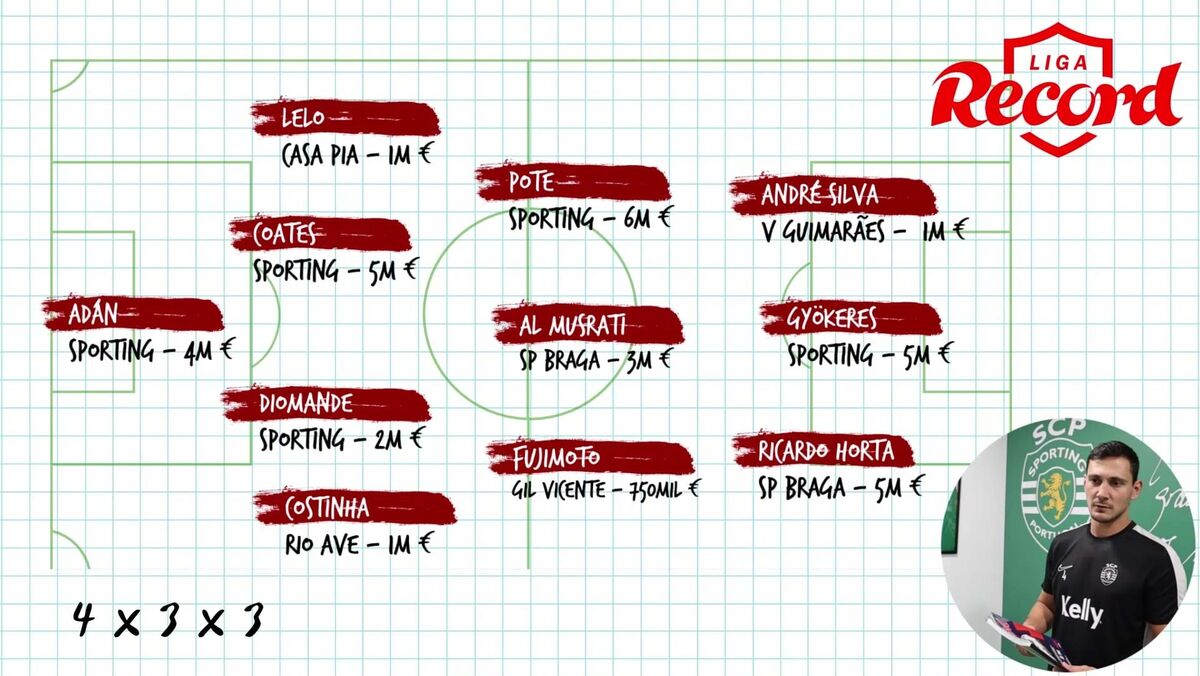 LIGA
Record
LELO
CASA PIA – 1M €
COATES
SPORTING – 5M €
ADÁN
SPORTING – 4M €
DIOMANDE
SPORTING – 2M €
COSTINHA
RIO AVE – 1M €
POTE
SPORTING – 6M €
AL MUSRATI
SP BRAGA – 3M €
FUJIMOTO
GIL VICENTE – 750MIL €
ANDRÉ SILVA
V GUIMARÃES – 1M €
GYÖKERES
SPORTING – 5M €
RICARDO HORTA
SP BRAGA – 5M €
4 x 3 x 3
SCP
SPORTING
PORTUGAL
SCP
4
Kelly